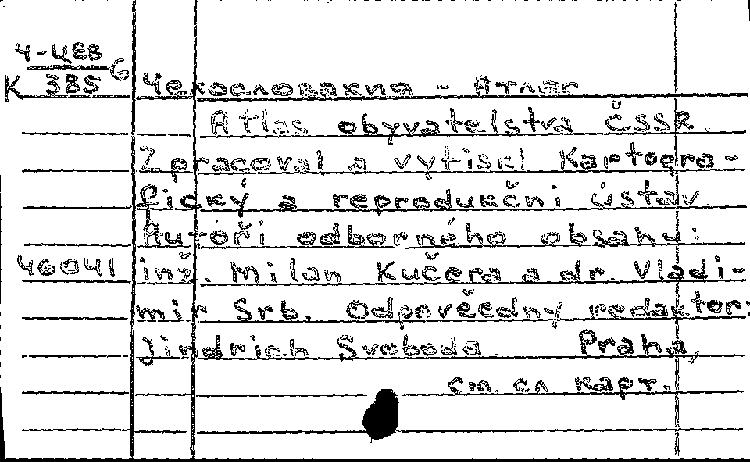 4-ЦЕВ
K 385 6
Чехословакия - Атлас
Atlas obyvatelstva ČSSR.
Zpracoval a vytiskl Kartogra-
fický a reprodukční ústav
Autoři odborného obsahu:
46041 inž. Milan Kučera a dr. Vladi-
mír Srb. Odpovědny redaktor:
Jindrich Svoboda. Praha,
см. сл. карт.